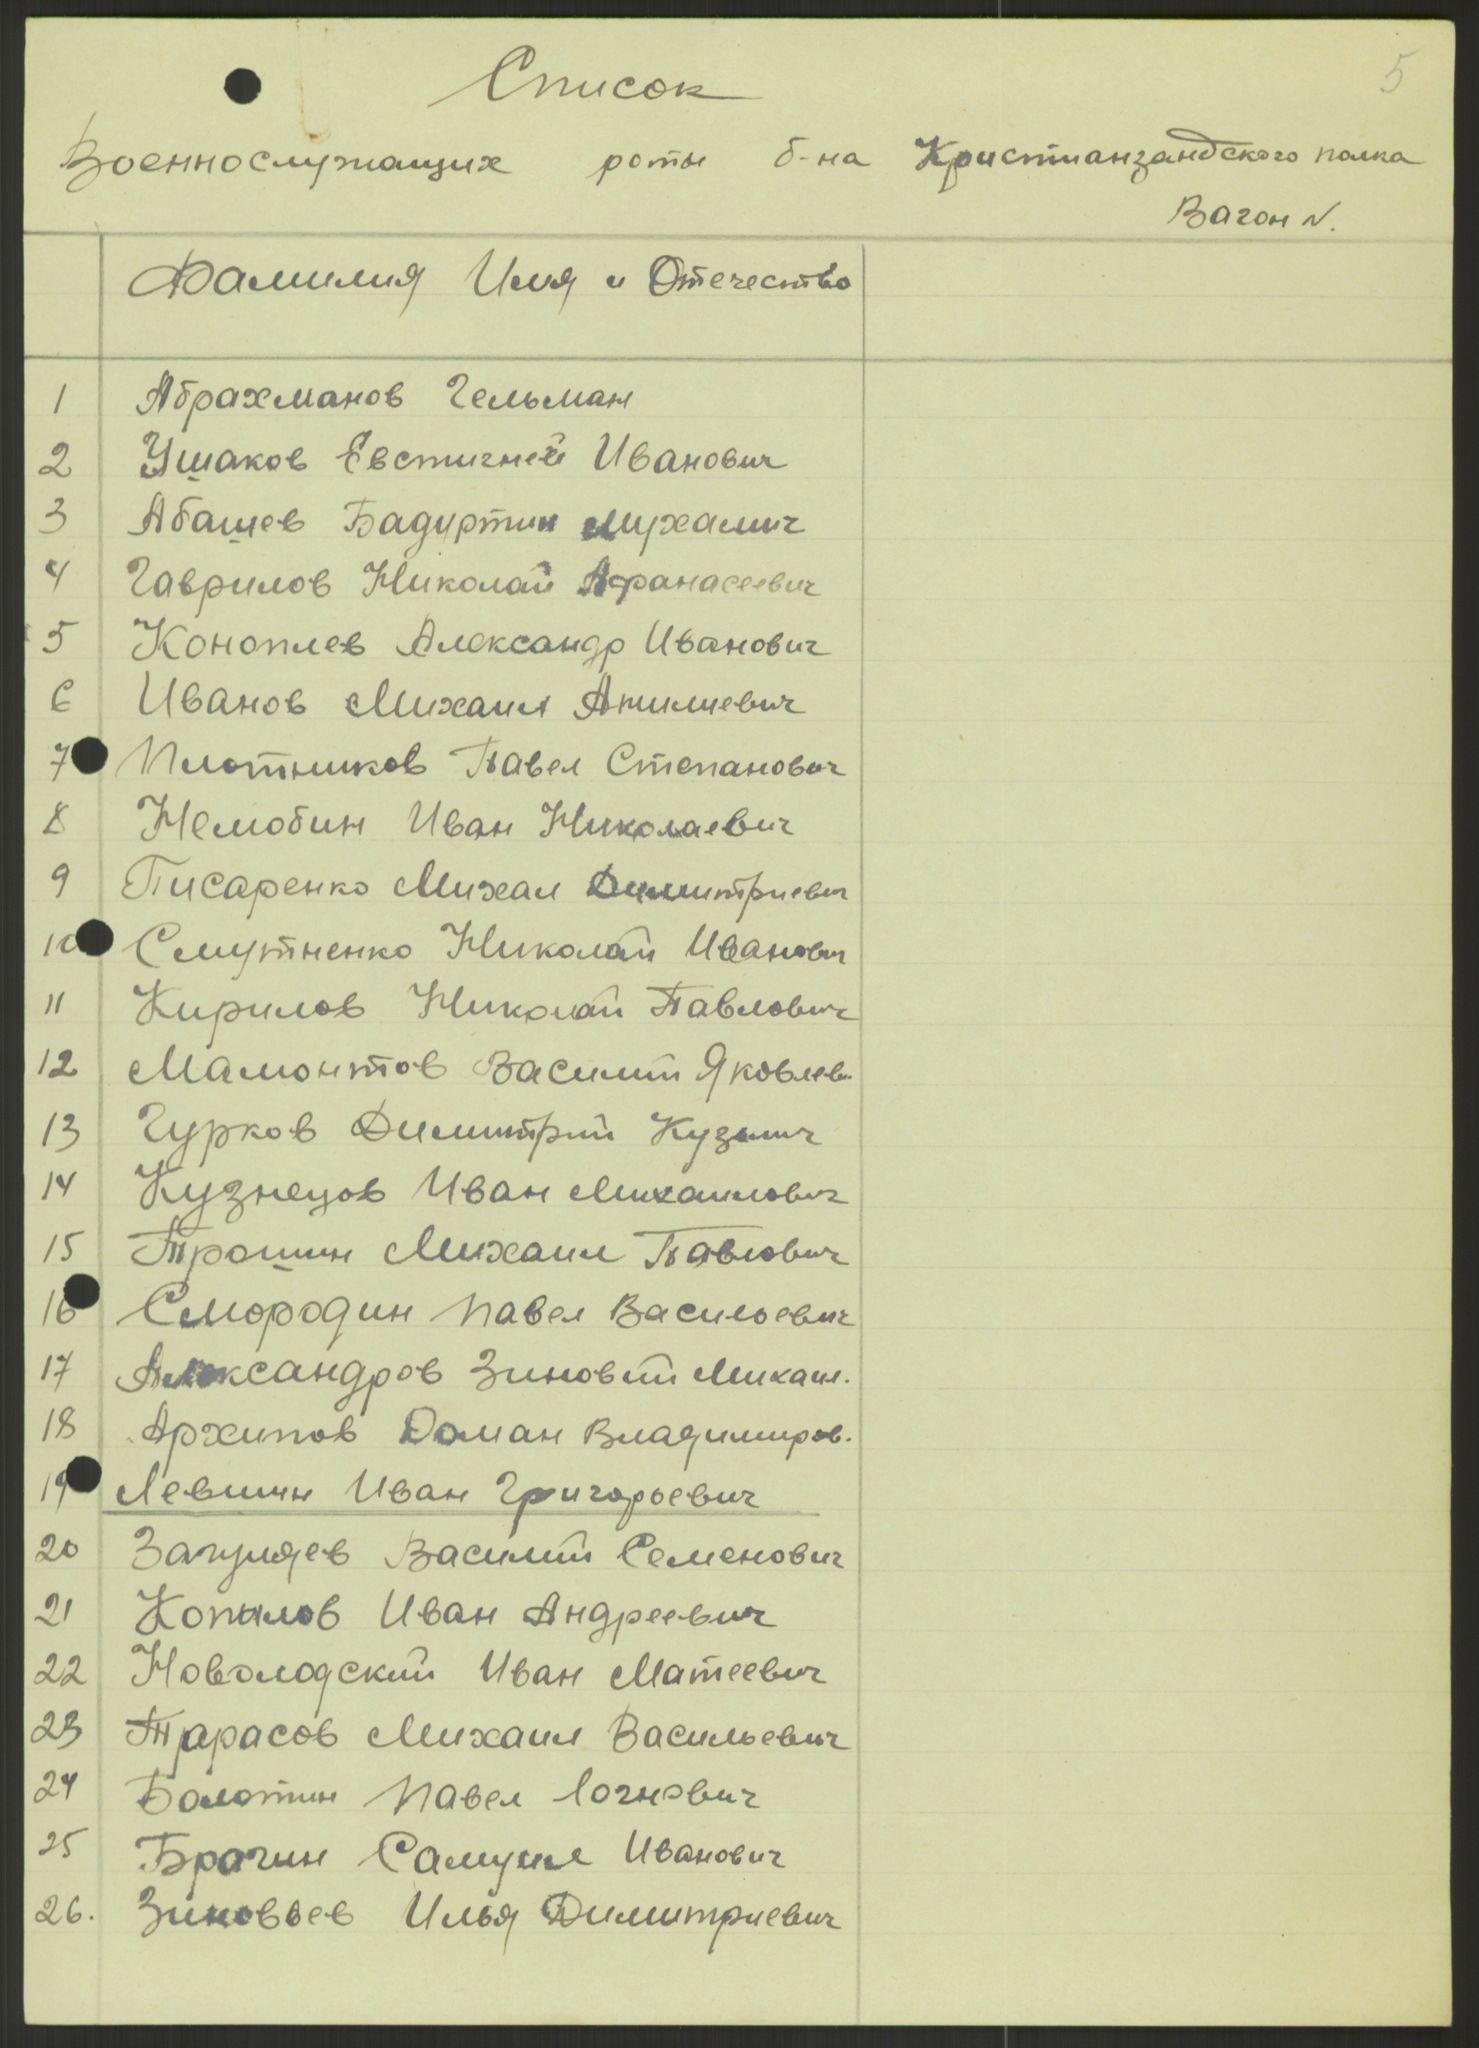 5
Список
Военнослужащих роты б-на Кристианзандского полка
Вагон N.
Фамилия Имя и Отечество
1 Абрахманов Гельман
2 Ушаков Евстигней Иванович
3 Абашев Бадуртин Мухамич
4 Гаврилов Николай Афанасеевич
5 Коноплев Александр Иванович
6 Иванов Михаил
7 Плотников Павел Степанович
8 Немобин Иван Николаевич
9 Писаренко Михал Димитриевич
10 Смутненко Николай Иванович
11 Кирилов Николай Павлович
12 Мамонтов Василий Яковлев.
13 Гурков Димитрий Кузмич
14 Кузнецов Иван Михаилович
15 Трошин Михаил Павлович
16 Смородин Павел Васильевич
17 Александров Зиновий Михаил.
18 Архипов Доман Владимиров.
19 Левшин Иван Григорьевич
20 Василий Семенович
21 Копылов Иван Андреевич
22 Новолодский Иван Матеевич
23 Тарасов Михаил Васильевич
24 Болотин Павел Логнович
25 Брагин Самуил Иванович
26. Зиновьев Илья Димитриевич